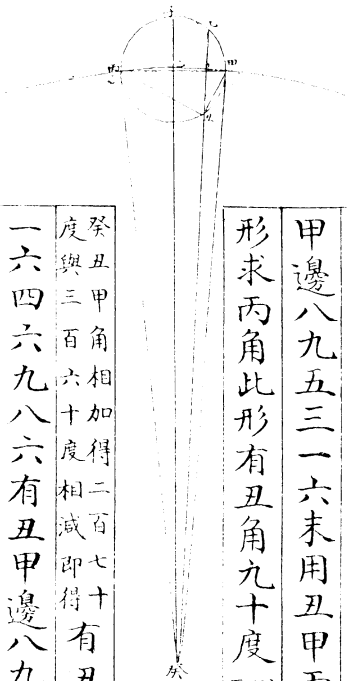 甲邊八九五三一六末用丑甲丙
形求丙角此形有丑角九十度
癸丑甲角相加得二百七十
度與三百六十度相減即得
有丑
一六四六九八六有丑甲邊八九
癸